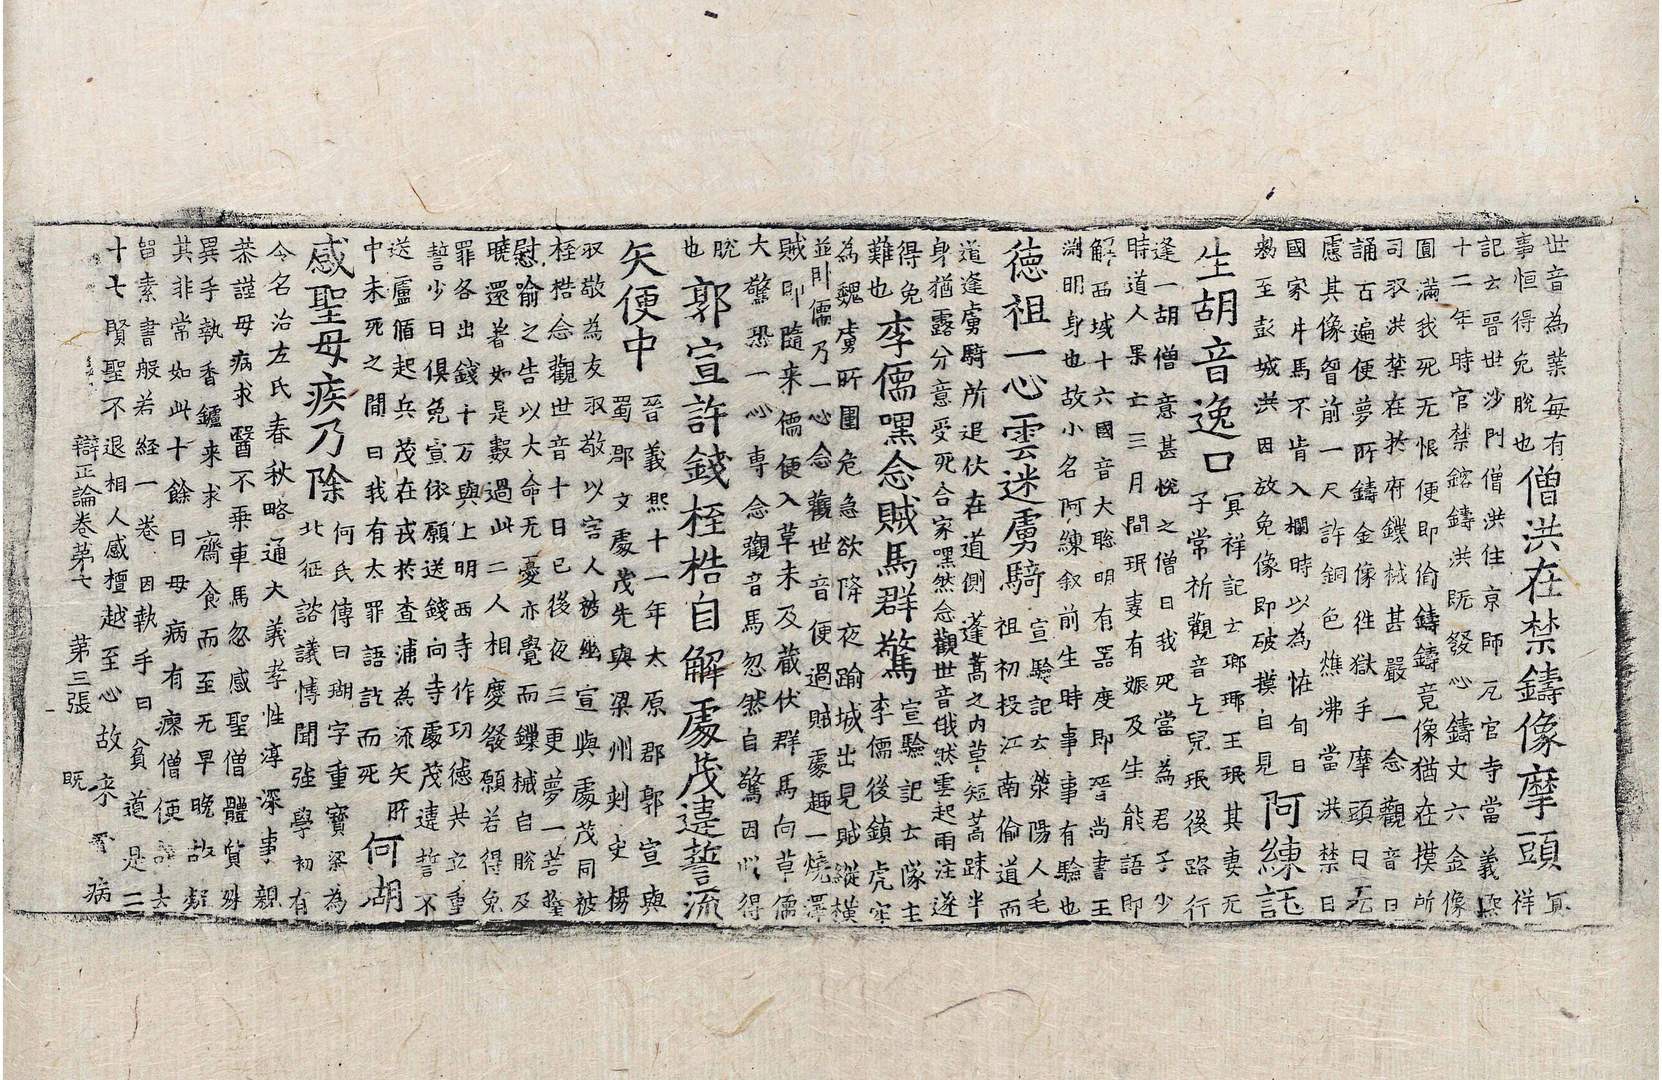 世音為業每有
事恒得免脫也
僧洪在禁鑄像摩頭
冥
祥
記云晉世沙門僧洪住京師瓦官寺當義熙
十二年時官禁鎔鑄洪既發心鑄丈六金像
圓滿我死无恨便即偷鑄鑄竟像猶在摸所
司収洪禁在扵府鏁械甚嚴一念觀音日
誦百遍便夢所鑄金像徃獄手摩頭曰无
慮其像胷前一尺許銅色燋沸當洪禁日
國家牛馬不肯入欄時以為恠旬日
勑至彭城洪因放免像即破摸自見
阿練託
生胡音逸口
冥祥記云瑯瑘王珉其妻无
子常祈觀音乞兒珉後路行
逢一胡僧意甚悅之僧曰我死當為君子少
時道人果亡三月間珉妻有娠及生能語即
解西域十六國音大聡明有器度即晉尚書王
渕明身也故小名阿練叙前生時事事有驗也
徳祖一心雲迷虜騎
宣驗記云滎陽人毛
祖初投江南偷道而
道逢虜騎所追伏在道側蓬蒿之内草短蒿踈半
身猶露分意受死合家嘿然念觀世音俄然雲起雨注遂
得免
難也
李儒嘿念賊馬群驚
宣驗記云隊主
李儒後鎮虎牢
為魏虜所圍危急欲降夜踰城出見賊縱横
並卧儒乃一心念觀世音便過賊處趣一燒澤
賊即隨来儒便入草未及蔵伏群馬向草儒
大驚恐一心専念觀音馬忽然自驚因此得
脫
也
郭宣許錢桎梏自解處茂違誓流
矢便中
晉義熈十一年太原郡郭宣與
蜀郡文處茂先與梁州刾史楊
収敬為友収敬以害人被幽宣與處茂同被
桎梏念觀世音十日已後夜三更夢一菩薩
慰喻之告以大命无憂亦覺而鏁械自脫及
曉還着如是數過此二人相慶發願若得免
罪各出錢十万與上明西寺作功徳共立重
誓少日俱免宣依願送錢向寺處茂違誓不
送盧循起兵茂在戎扵查浦為流矢所
中未死之間曰我有太罪語訖而死
何胡
感聖母疾乃除
何氏傳曰瑚字重寳梁為
北征諮議愽聞强學初有
令名治左氏春秋略通大義孝性淳深事親
恭謹母病求醫不乗車馬忽感聖僧體質殊
異手執香鑪来求齋食而至无早晚故疑
其非常如此十餘日母病有瘳僧便去
留素書般若経一卷因執手曰貧道是二
十七賢聖不退相人感檀越至心故来看病
辯正論卷第七　第三張　既